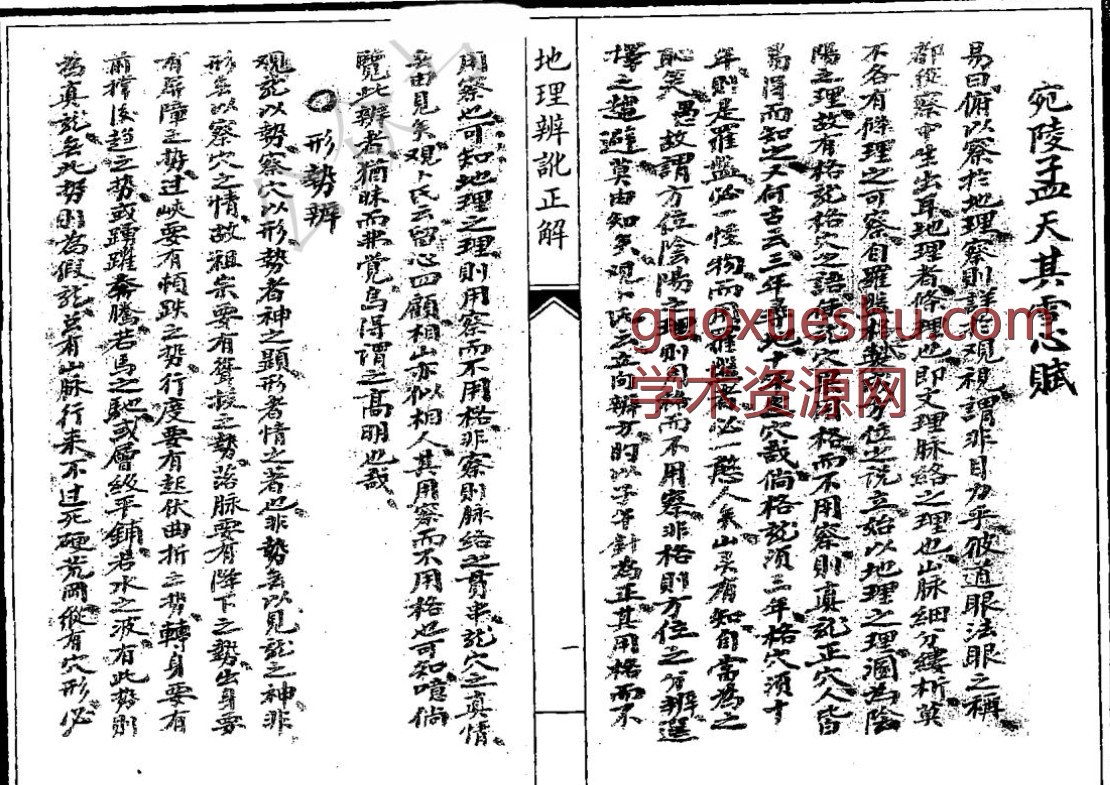 宛陵孟天其雪心賦
易曰俯以察於地理察則詳於觀視謂非目力乎彼道眼法眼之稱
都從察中生出耳地理者條理也即文理脉絡之理也山脉細分縷析莫
不各有條理之可察自羅經格方位之説立始以地理之理溷為陰
陽之理故有格龍格穴之語 穴用格而不用察則真龍正穴人皆
易得而知之又何古云三年尋地十年 穴哉倘格龍須三年格穴須十
年則是羅盤必一怪物而用羅盤者必一憨人矣山灵有知自當為之
恥笑愚故謂方位陰陽之理則用格而不用察非格則方位之分辨選
擇之趨避莫由知矣觀卜氏云立向辨方的以子午針為正其用格而不
用察也可知地理之理則用察而不用格非察則脉絡之貫串龍穴之真情
無由見矣觀卜氏云留心四顧相山亦似相人其用察而不用格也可知噫倘
覽此辨者猶昧而弗覺烏得謂之高明也哉
形勢辨
觀龍以勢察穴以形勢者神之顯形者情之著也非勢無以見龍之神非
形無以察穴之情故祖宗要有聳拔之勢落脉要有降下之勢出身要
有屏障之勢過峽要有頓跌之勢行度要有起伏曲折之勢轉身要有
前撑後趕之勢或踴躍奔騰若馬之馳或層級平鋪若水之波有此勢則
為真龍無此勢則為假龍茍有山脉行来不过死硬荒岡縱有穴形必
地理辨訛正解
一
guoxueshu.com
学术资源网